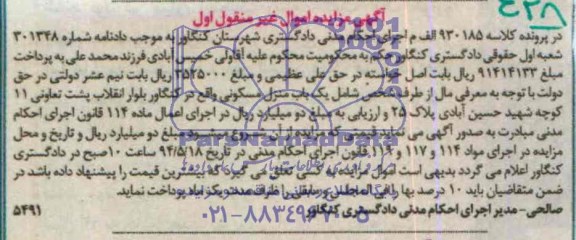 ۴۲۸
آگهی مزایده اموال غیر منقول اول
در پرونده کلاسه ۹۳۰۱۸۵ الف م اجرای احکام مدنی دادگستری شهرستان کنگاور به موجب دادنامه شماره ۳۰۱۳۴۸
شعبه اول حقوقی دادگستری کنگاور حکم به محکومیت محکوم علیه آقاولی خمیس آبادی فرزند محمد علی به پرداخت
مبلغ ۹۱۴۱۴۱۳۳ ریال بابت اصل خواسته در حق علی عظیمی و مبلغ ۳۵۲۵۰۰۰ ریال بابت نیم عشر دولتی در حق
دولت با توجه به معرفی مال از طرف شخص شامل یک باب منزل مسکونی واقع در کنگاور بلوار انقلاب پشت تعاونی ۱۱
کوچه شهید حسین آبادی پلاک ۲۵ و ارزیابی به مبلغ دو میلیارد ریال در اجرای اعمال ماده ۱۱۴ قانون اجرای احکام
مدنی مبادرت به صدور آگهی می نماید قیمتی که مزایده از آن شروع میشود مبلغ دو میلیارد ریال و تاریخ و محل
مزایده در اجرای مواد ۱۱۴ و ۱۱۷ و ۱۱۸ قانون اجرای احکام مدنی در تاریخ ۹۴/۵/۱۸ ساعت ۱۰صبح در دادگستری
کنگاور اعلام می گردد بدیهی است اموال مزایده به کسی تعلق می گیرد که بیشترین قیمت را پیشنهاد داده باشد در
ضمن متقاضیان باید ۱۰ درصد بها را فی المجلس و مابقی را ظرف مدت یک ماه پرداخت نماید
صالحی- مدیر اجرای احکام مدنی دادگستری کنگاور
۵۴۹۱
ParsNamadData
۰۲۱-۸۸۳۴۹۶۷۰-۵